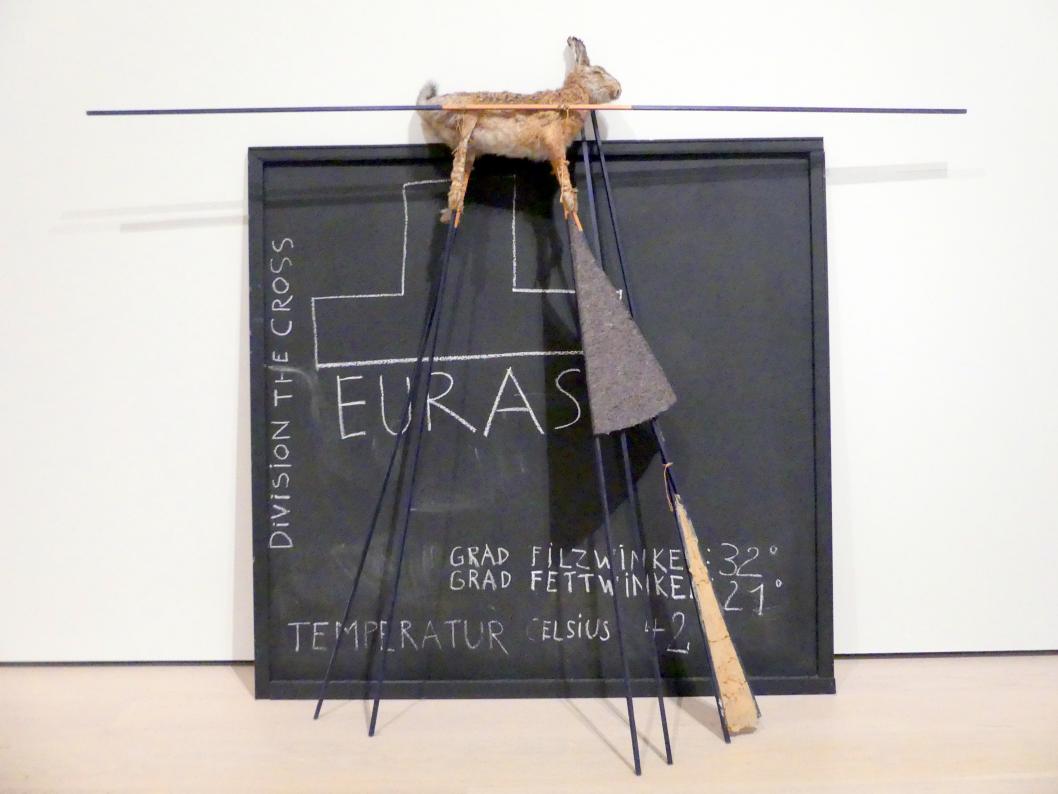 DIVISION THE CROSS
EURAS
GRAD FILZWINKEL: 32°
GRAD FETTWINKEL: 21°
TEMPERATUR CELSIUS 42